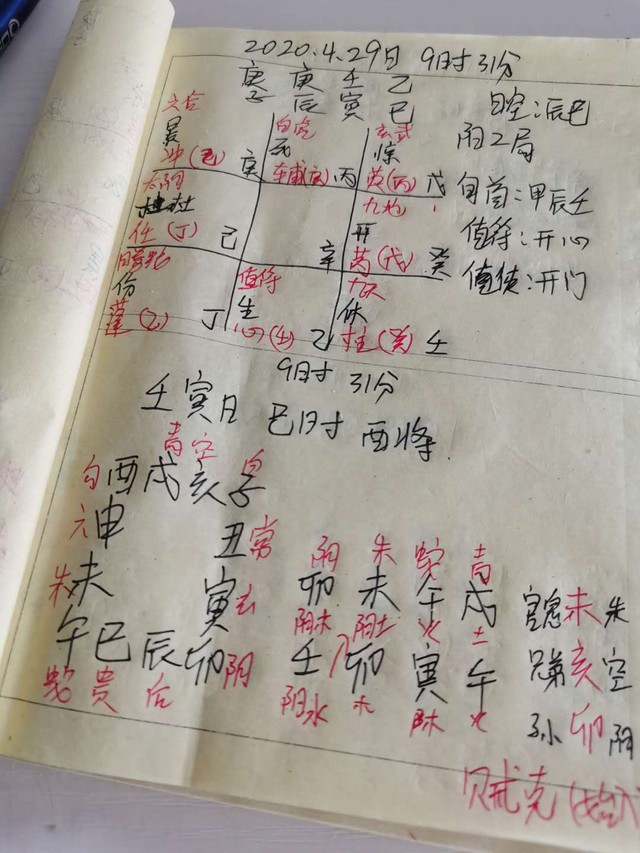 2020.4.29日 9时31分
庚 庚 壬 乙
子 辰 寅 巳
日空:辰巳
阳二局
旬首:甲辰壬
值符:开心
值使:开门
六合 白虎 玄武
景 死 惊
冲(乙) 庚 丙 英(丙) 戊
太阴 九地
杜 开
任(丁) 己 辛 芮(戊) 癸
值符 九天
生 休
蓬(乙) 丁 心(壬) 乙 柱(癸) 壬
9时31分
壬寅日 巳时 酉将
青 空
勾 酉 戌 亥 子
六 申 丑 常
朱 未 寅 玄
午 巳 辰 卯 阴
蛇 贵 后
阴 朱 蛇 青
卯 未 午 戌
阴木 阴土 火 土
壬 卯 寅 午
阳水 木 阳木 火
官鬼 未 朱
兄弟 亥 空
子孙 卯 阴
贼克